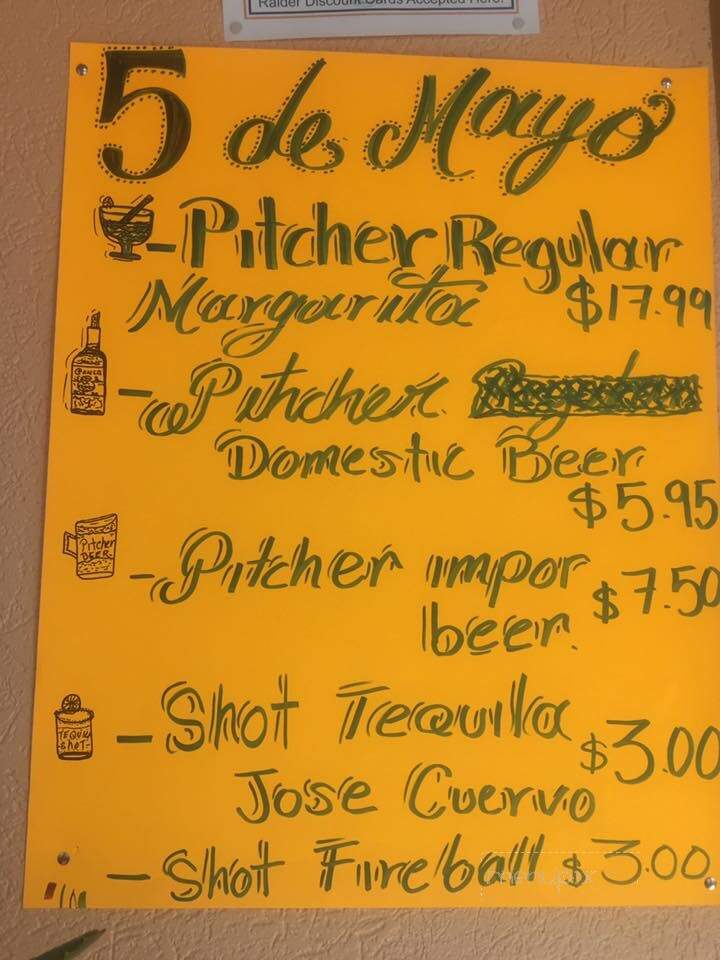 Raider Discount Cards Accepted Here.
5 de Mayo
- Pitcher Regular
Margarita $17.99
- Pithcher
Domestic Beer
$5.95
Pitcher
BEER
- Pitcher impor
beer. $7.50
TEQUILA
SHOT
- Shot Tequila
$3.00
Jose Cuervo
- Shot Fireball $3.00
menupix